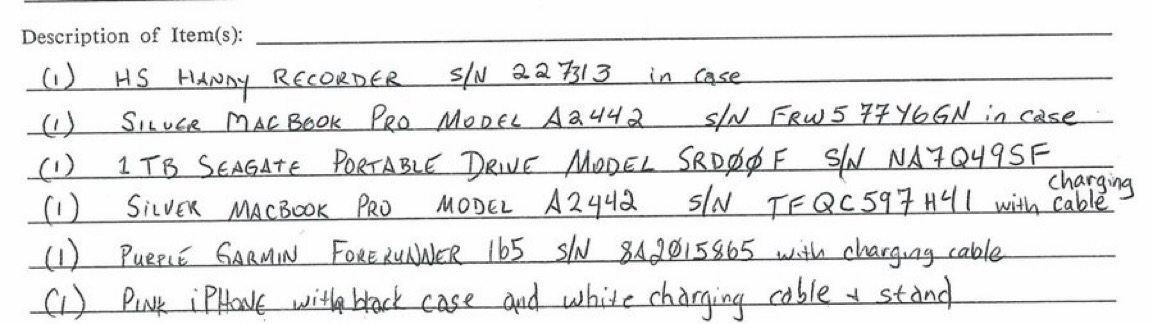 Description of Item(s):
(1) HS HANDY RECORDER S/N 227313 in case
(1) SILVER MACBOOK PRO MODEL A2442 S/N FRW577Y6GN in case
(1) 1TB SEAGATE PORTABLE DRIVE MODEL SRD00F S/N NA7Q49SF
(1) SILVER MACBOOK PRO MODEL A2442 S/N TFQC597H41 with charging cable
(1) PURPLE GARMIN FORERUNNER 165 S/N 8A2015865 with charging cable
(1) PINK iPHONE with black case and white charging cable & stand